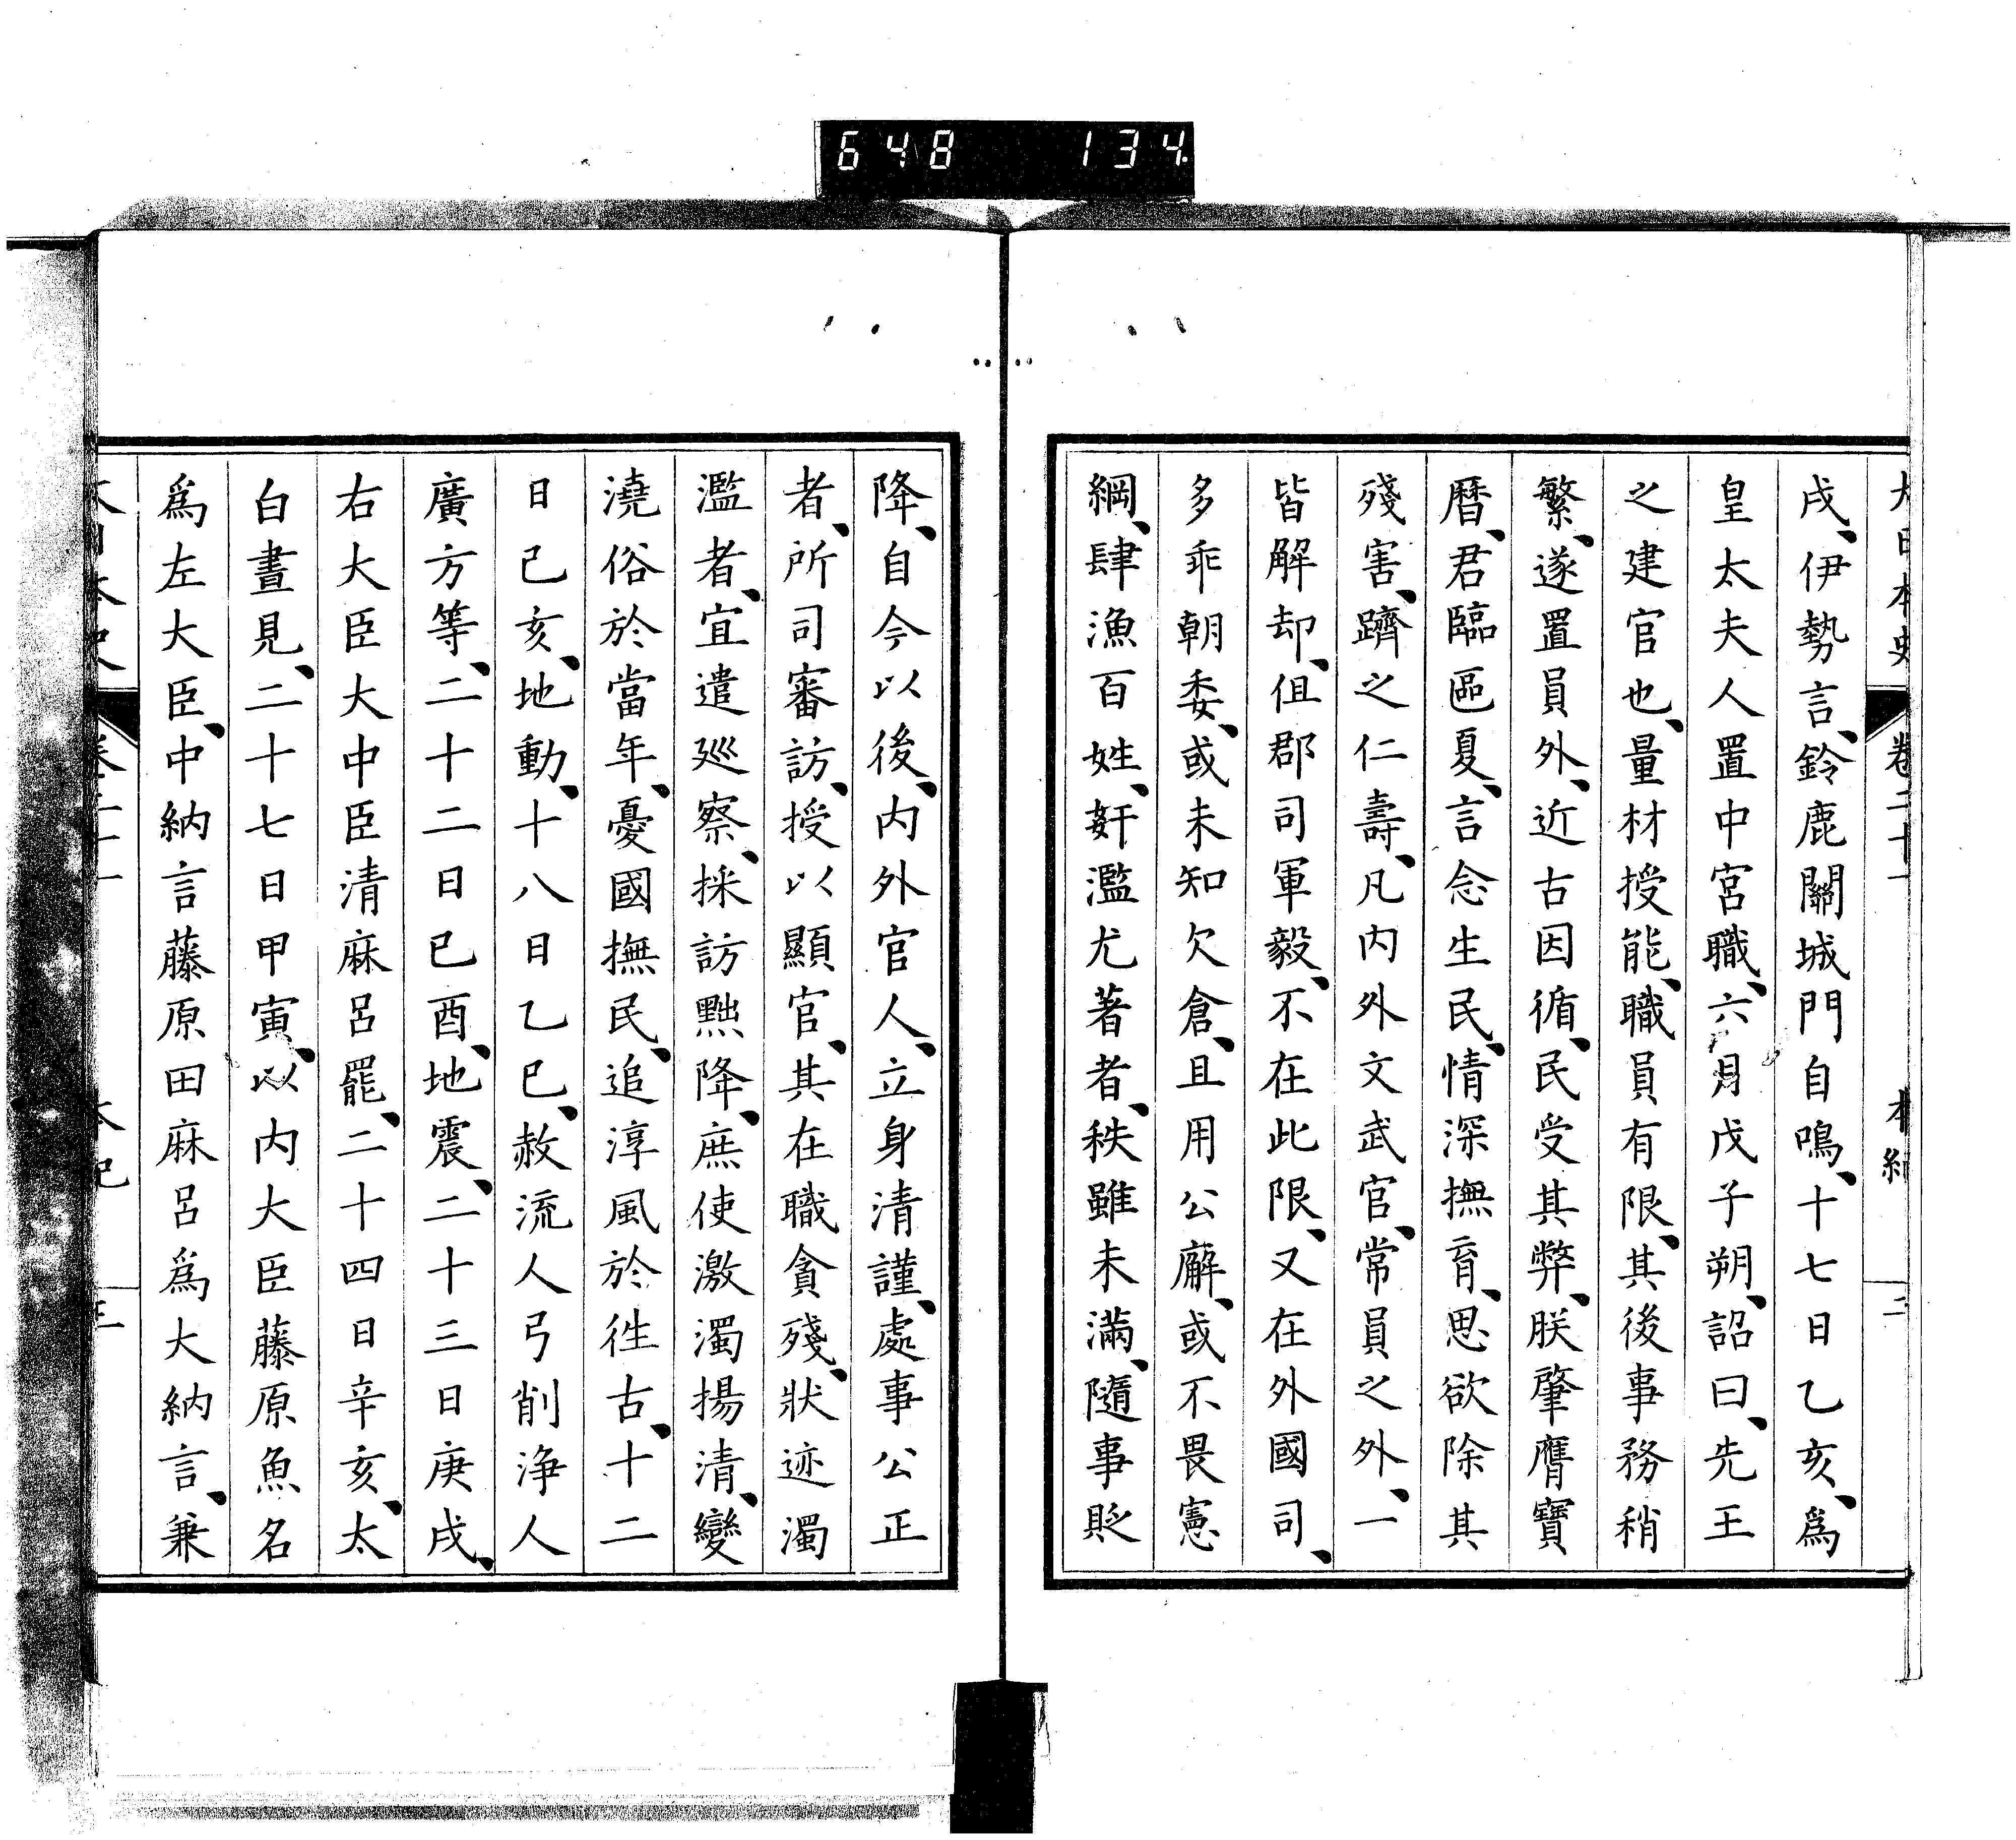 648 134
大日本史 卷二十一 本紀 二
戌、伊勢言、鈴鹿關城門自鳴、十七日乙亥、爲
皇太夫人置中宮職、六月戊子朔、詔曰、先王
之建官也、量材授能、職員有限、其後事務稍
繁、遂置員外、近古因循、民受其弊、朕肇膺寶
曆、君臨區夏、言念生民、情深撫育、思欲除其
殘害、躋之仁壽、凡内外文武官、常員之外、一
皆解却、但郡司軍毅、不在此限、又在外國司、
多乖朝委、或未知欠倉、且用公廨、或不畏憲
綱、肆漁百姓、姧濫尤著者、秩雖未滿、隨事貶
降、自今以後、内外官人、立身清謹、處事公正
者、所司審訪、授以顯官、其在職貪殘、狀迹濁
濫者、宜遣廵察、採訪黜降、庶使激濁揚清、變
澆俗於當年、憂國撫民、追淳風於徃古、十二
日己亥、地動、十八日乙巳、赦流人弓削浄人
廣方等、二十二日己酉、地震、二十三日庚戌、
右大臣大中臣清麻呂罷、二十四日辛亥、太
白晝見、二十七日甲寅、以内大臣藤原魚名
爲左大臣、中納言藤原田麻呂爲大納言、兼
大日本史 卷二十一 本紀 三